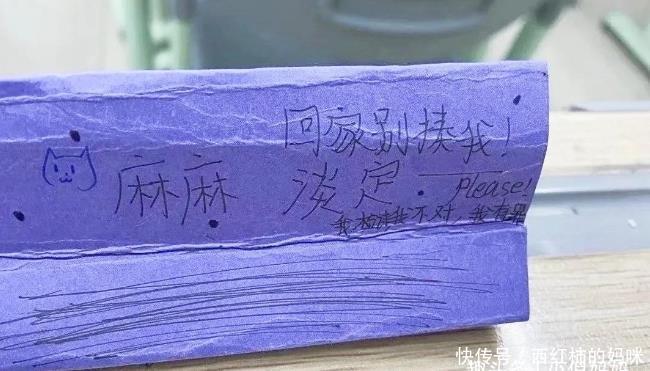 回家别揍我!
麻麻 淡定.
please!
我 不对,我有
快传号/西红柿的妈咪